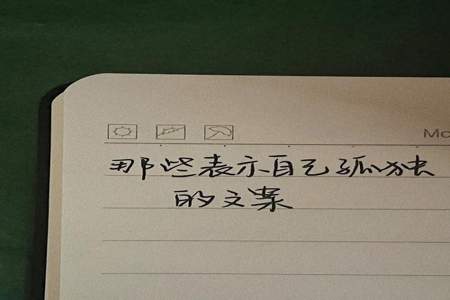 Mo
那些表示自己孤独
的文案